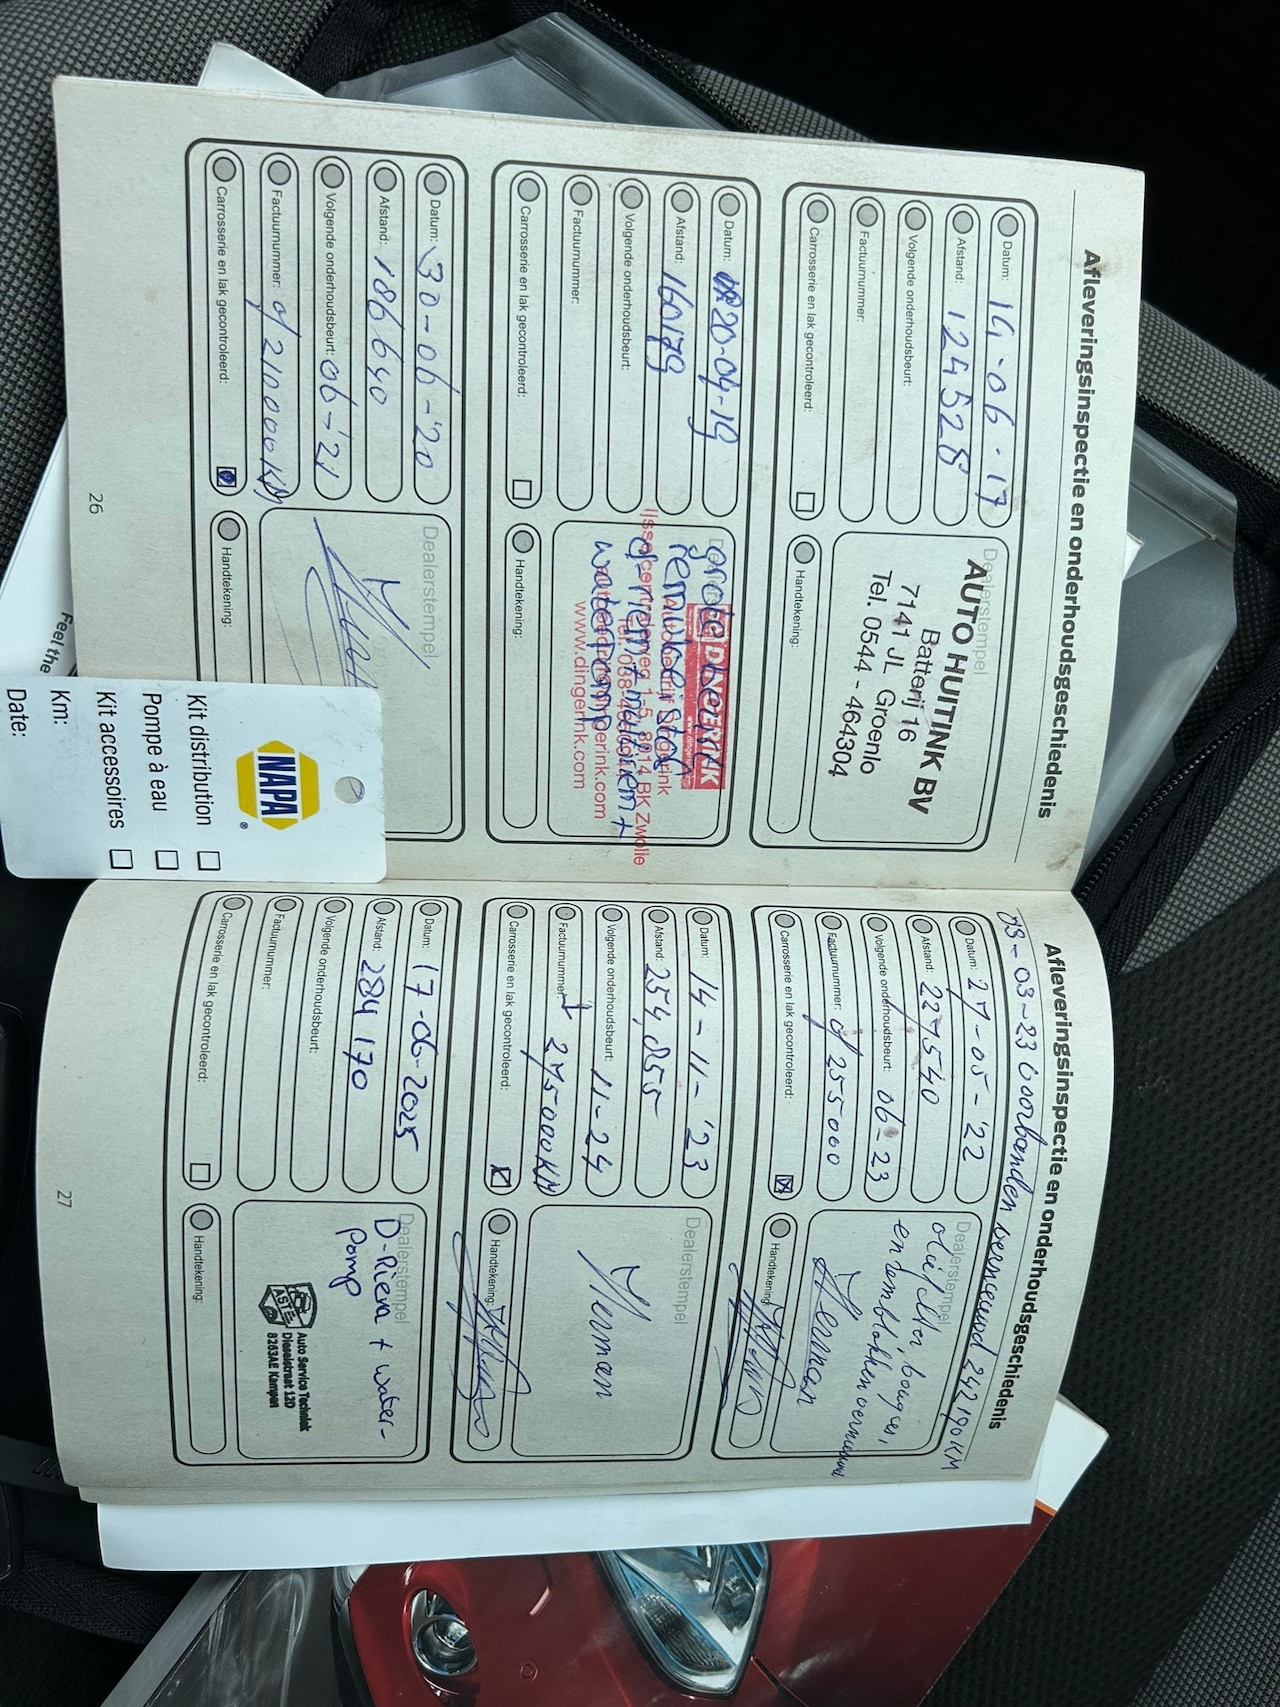 Afleveringsinspectie en onderhoudsgeschiedenis
Datum: 14-06-17
Afstand: 124528
Volgende onderhoudsbeurt:
Factuurnummer:
Carrosserie en lak gecontroleerd:
Dealerstempel
AUTO HUITINK BV
Batterij 16
7141 JL Groenlo
Tel. 0544 - 464304
Handtekening:
Datum: 20-04-19
Afstand: 160179
Volgende onderhoudsbeurt:
Factuurnummer:
Carrosserie en lak gecontroleerd:
grote beurt
remvloeistof
d-riem + multiriem +
waterpomp
8014 BK Zwolle
www.dingerink.com
Handtekening:
Datum: 30-06-'20
Afstand: 186640
Volgende onderhoudsbeurt: 06-'21
Factuurnummer: of 210000KM
Carrosserie en lak gecontroleerd:
Dealerstempel
Handtekening:
26
Feel the
NAPA
®
Kit distribution
Pompe à eau
Kit accessoires
Km:
Date:
Afleveringsinspectie en onderhoudsgeschiedenis
03-03-23 voorbanden vernieuwd 242190KM
Datum: 27-05-'22
Afstand: 227540
Volgende onderhoudsbeurt: 06-23
Factuurnummer: of 255000
Carrosserie en lak gecontroleerd:
Dealerstempel
oliefilter, bougies,
en remblokken vernieuwd
Herman
Handtekening:
Datum: 14-11-'23
Afstand: 254,855
Volgende onderhoudsbeurt: 11-24
Factuurnummer: 275000KM
Carrosserie en lak gecontroleerd:
Dealerstempel
Herman
Handtekening:
Datum: 17-06-2025
Afstand: 284170
Volgende onderhoudsbeurt:
Factuurnummer:
Carrosserie en lak gecontroleerd:
Dealerstempel
D-Riem + water-
pomp
ASTE
Auto Service Techniek
Dieselstraat 12D
8263AE Kampen
Handtekening:
27